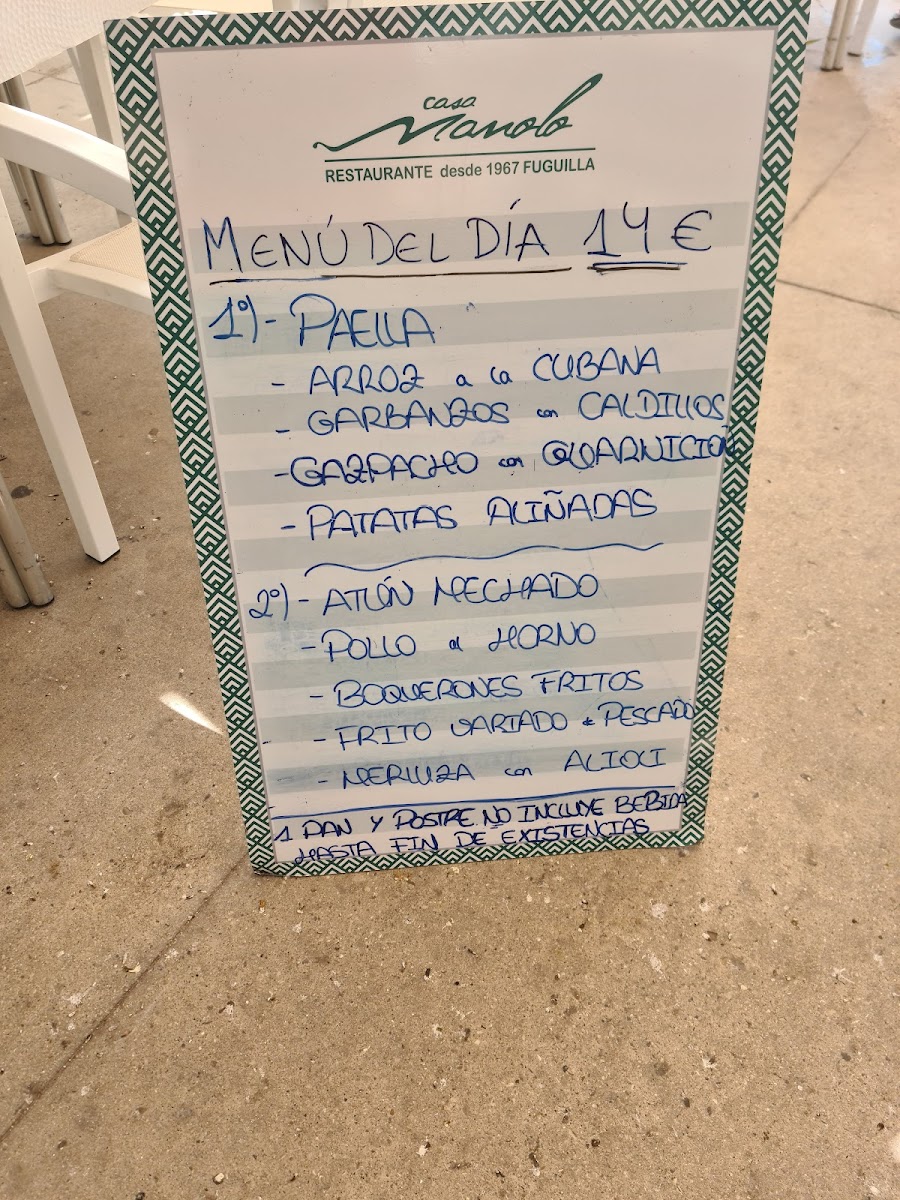 casa
Manolo
RESTAURANTE desde 1967 FUGUILLA
MENÚ DEL DÍA 14 €
1º) - PAELLA
- ARROZ a la CUBANA
- GARBANZOS con CALDILLOS
- GAZPACHO con GUARNICIÓN
- PATATAS ALIÑADAS
2º) - ATÚN MECHADO
- POLLO al HORNO
- BOQUERONES FRITOS
- FRITO VARIADO de PESCADO
- MERLUZA con ALIOLI
1 PAN Y POSTRE NO INCLUYE BEBIDA
HASTA FIN DE EXISTENCIAS